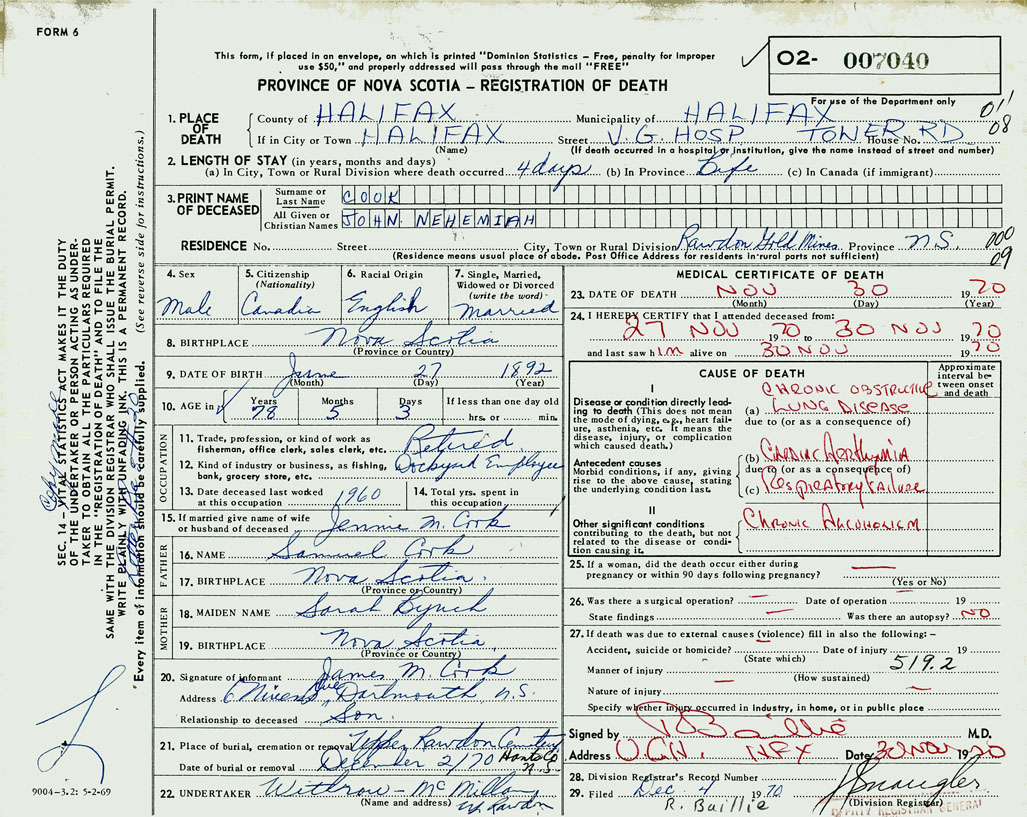 FORM 6
This form, if placed in an envelope, on which is printed "Dominion Statistics – Free, penalty for improper
use $50," and properly addressed will pass through the mail "FREE"
PROVINCE OF NOVA SCOTIA – REGISTRATION OF DEATH
O2- 007040
For use of the Department only
011
08
1. PLACE OF DEATH
County of HALIFAX Municipality of HALIFAX
If in City or Town HALIFAX Street V.G. HOSP TOWER RD House No.
(Name) (If death occurred in a hospital or institution, give the name instead of street and number)
2. LENGTH OF STAY (in years, months and days)
(a) In City, Town or Rural Division where death occurred 4 days (b) In Province Life (c) In Canada (if immigrant)
3. PRINT NAME OF DECEASED
Surname or Last Name COOK
All Given or Christian Names JOHN NEHEMIAH
RESIDENCE No. Street City, Town or Rural Division Rawdon Gold Mines Province N.S. 000
(Residence means usual place of abode. Post Office Address for residents in rural parts not sufficient) 09
4. Sex
Male
5. Citizenship
(Nationality)
Canadia
6. Racial Origin
English
7. Single, Married,
Widowed or Divorced
(write the word)
Married
8. BIRTHPLACE Nova Scotia
(Province or Country)
9. DATE OF BIRTH June 27 1892
(Month) (Day) (Year)
10. AGE in Years Months Days If less than one day old
78 5 3 hrs. or min.
OCCUPATION
11. Trade, profession, or kind of work as
fisherman, office clerk, sales clerk, etc. Retired
12. Kind of industry or business, as fishing,
bank, grocery store, etc. Dockyard Employee
13. Date deceased last worked
at this occupation 1960
14. Total yrs. spent in
this occupation
15. If married give name of wife
or husband of deceased Jennie M. Cook
FATHER
16. NAME Samuel Cook
17. BIRTHPLACE Nova Scotia.
(Province or Country)
MOTHER
18. MAIDEN NAME Sarah Bynch
19. BIRTHPLACE Nova Scotia
(Province or Country)
20. Signature of informant James M. Cook
Address 6 Ave Dartmouth N.S.
Relationship to deceased Son.
21. Place of burial, cremation or removal Upper Rawdon Cemetery
Date of burial or removal December 2/70 Hants Co
N.S.
22. UNDERTAKER Withrow - McMillan
(Name and address) Rawdon
MEDICAL CERTIFICATE OF DEATH
23. DATE OF DEATH NOV 30 1970
(Month) (Day) (Year)
24. I HEREBY CERTIFY that I attended deceased from:
27 NOV 1970 to 30 NOV 1970
and last saw him alive on 30 NOV 1970
CAUSE OF DEATH
Approximate
interval be-
tween onset
and death
I
Disease or condition directly lead-
ing to death (This does not mean
the mode of dying, e.g., heart fail-
ure, asthenia, etc. It means the
disease, injury, or complication
which caused death.)
CHRONIC OBSTRUCTIVE
(a) LUNG DISEASE
due to (or as a consequence of)
Antecedent causes
Morbid conditions, if any, giving
rise to the above cause, stating
the underlying condition last.
(b) CARDIAC ARRHYTHMIA
due to (or as a consequence of)
(c) RESPIRATORY FAILURE
II
Other significant conditions
contributing to the death, but not
related to the disease or condi-
tion causing it.
CHRONIC ALCOHOLISM
25. If a woman, did the death occur either during
pregnancy or within 90 days following pregnancy? —
(Yes or No)
26. Was there a surgical operation? — Date of operation 19
State findings — Was there an autopsy? NO
27. If death was due to external causes (violence) fill in also the following: –
Accident, suicide or homicide? Date of injury 19
(State which) 519.2
Manner of injury
— (How sustained)
Nature of injury —
Specify whether injury occurred in industry, in home, or in public place
Signed by Baillie M.D.
Address V.G.H. HFX Date 30 NOV 1970
28. Division Registrar's Record Number
29. Filed Dec. 4 1970
R. Baillie (Division Registrar)
DEPUTY REGISTRAR GENERAL
SEC. 14 – VITAL STATISTICS ACT MAKES IT THE DUTY
OF THE UNDERTAKER OR PERSON ACTING AS UNDER-
TAKER TO OBTAIN ALL THE PARTICULARS REQUIRED
IN THE "REGISTRATION OF DEATH" AND TO FILE THE
SAME WITH THE DIVISION REGISTRAR WHO SHALL ISSUE THE BURIAL PERMIT.
WRITE PLAINLY WITH UNFADING INK. THIS IS A PERMANENT RECORD.
Every item of information should be carefully supplied. (See reverse side for instructions.)
9004-3.2: 5-2-69